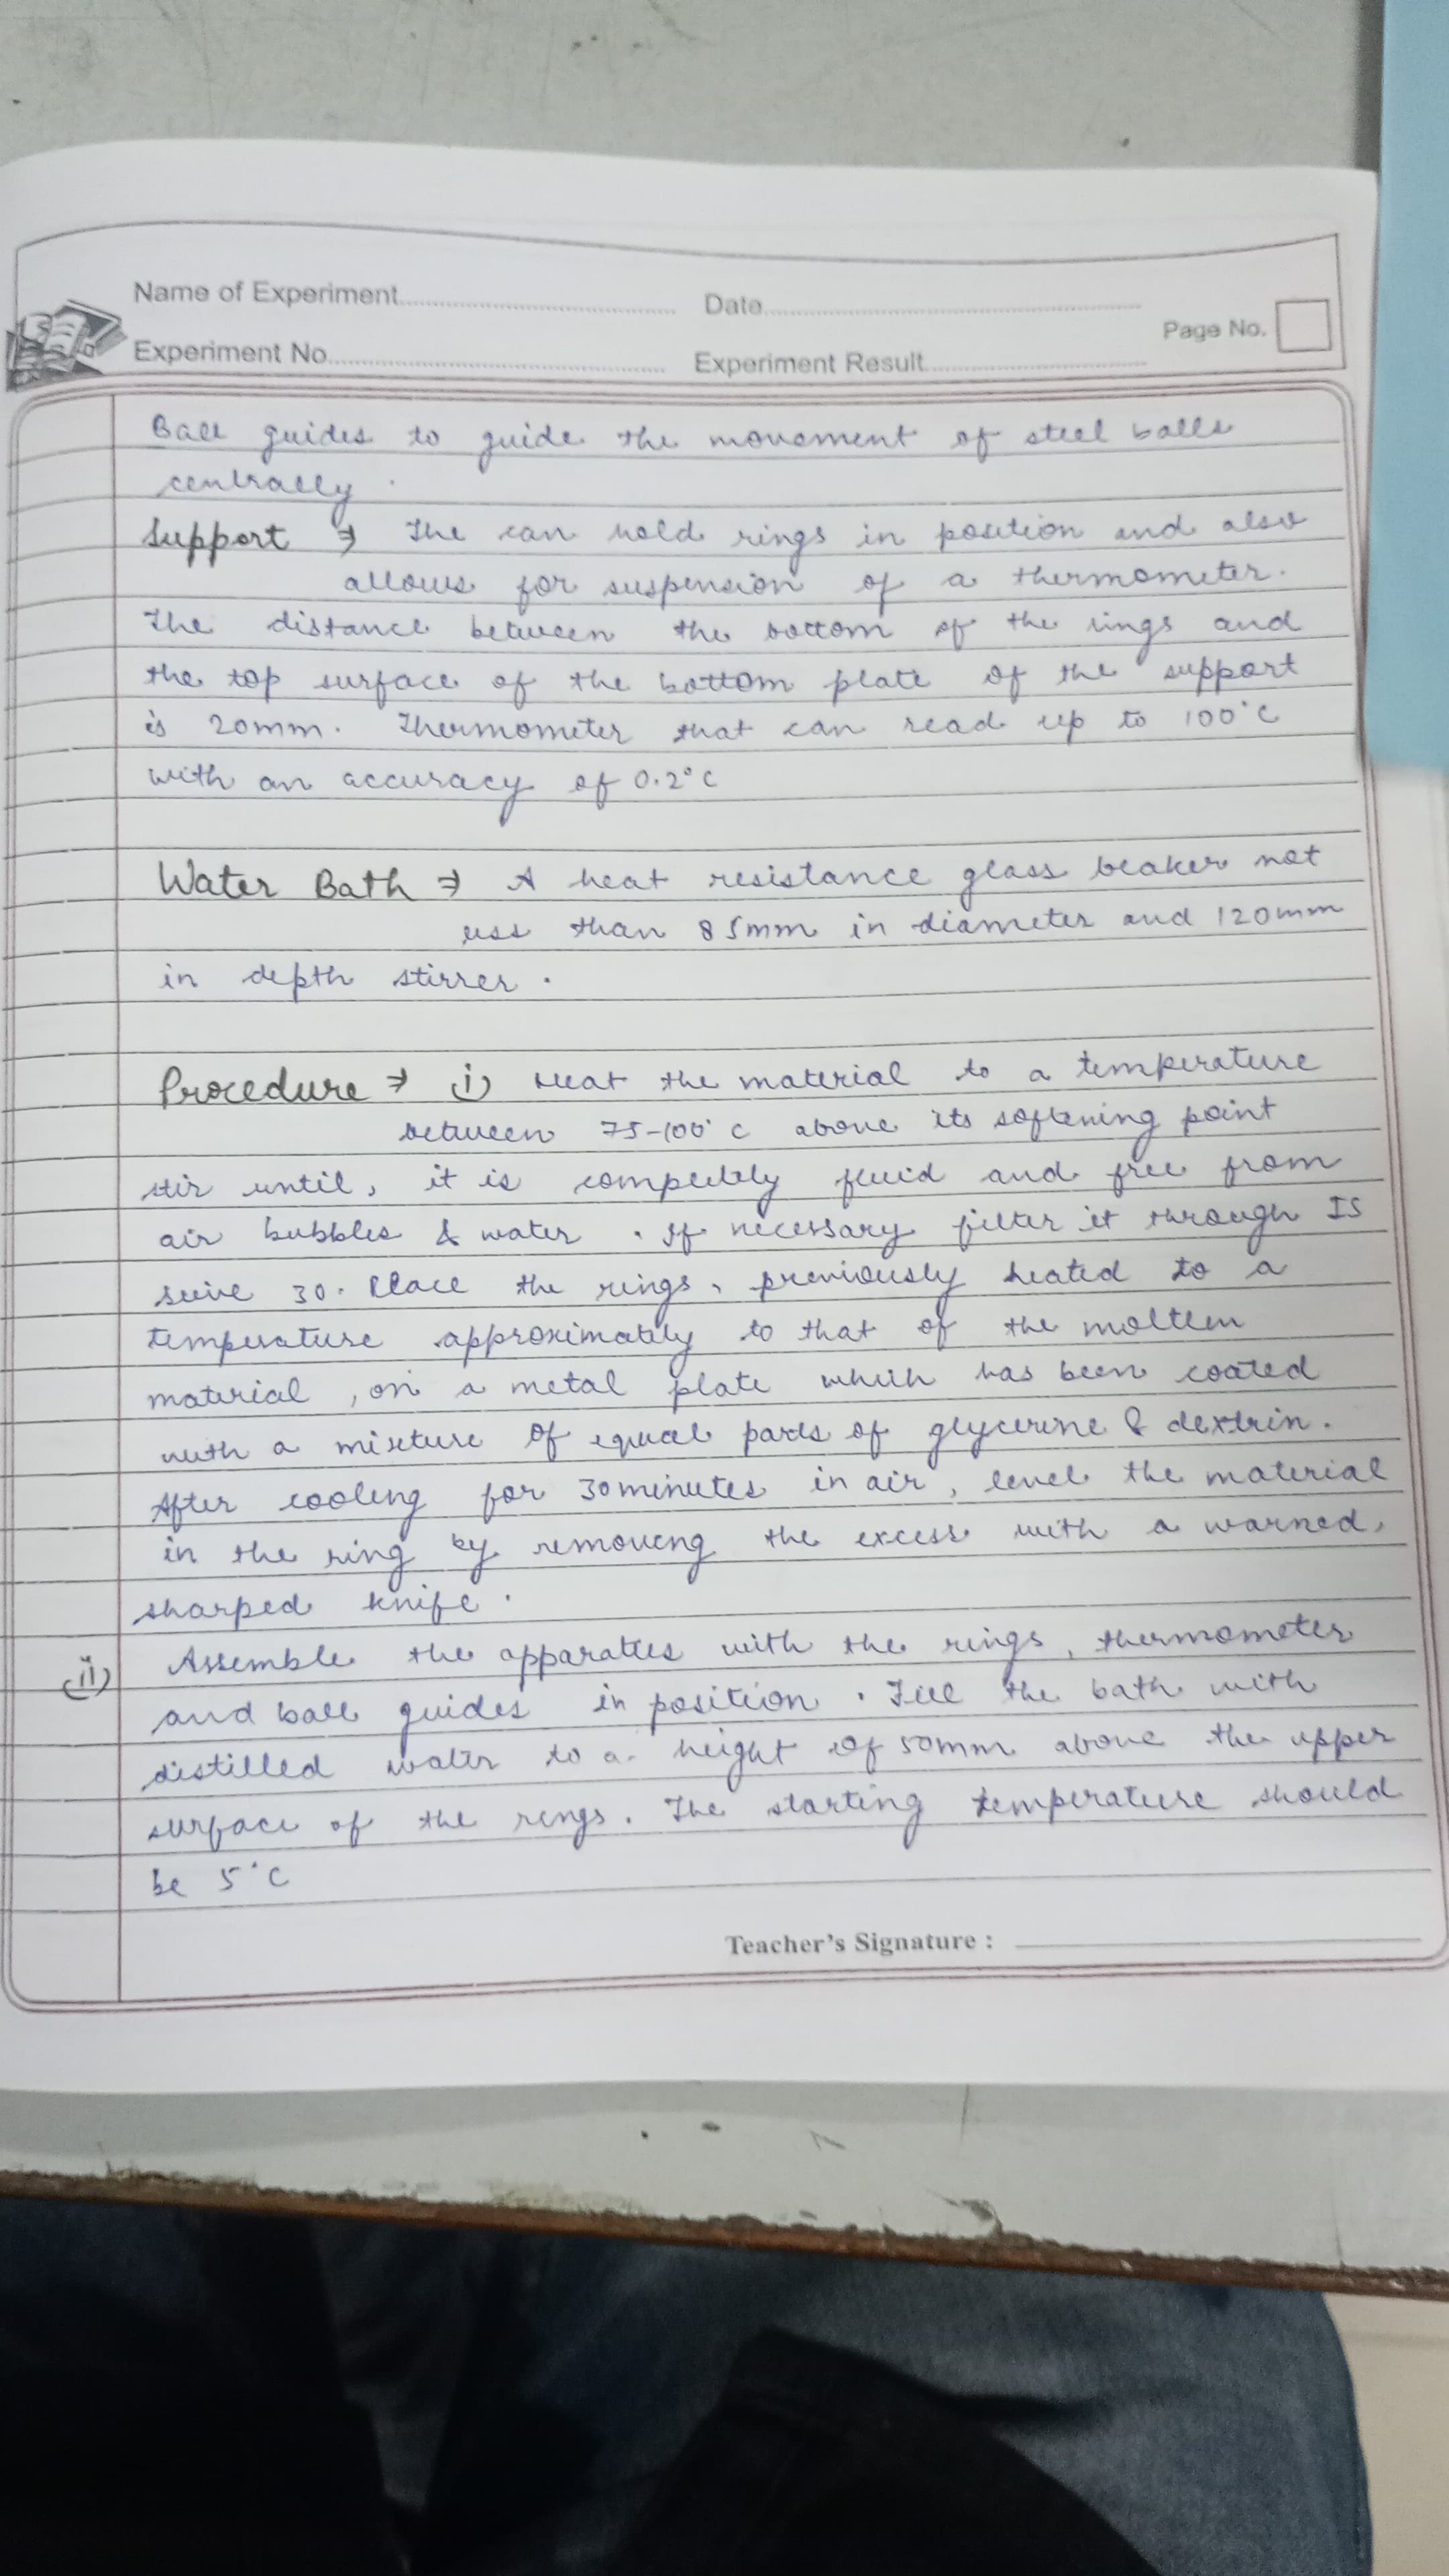 Name of Experiment
Date
Page No.
Experiment No.
Experiment Result
Ball guides to guide the movement of steel balls
centrally.
Support ⇒ The can hold rings in position and also
allows for suspension of a thermometer.
The distance between the bottom of the rings and
the top surface of the bottom plate of the support
is 20mm. Thermometer that can read up to 100°C
with an accuracy of 0.2°C
Water Bath ⇒ A heat resistance glass beaker not
less than 85mm in diameter and 120mm
in depth stirrer.
Procedure ⇒ (i) Heat the material to a temperature
between 75-100°C above its softening point
stir until, it is completely fluid and free from
air bubbles & water. If necessary filter it through IS
seive 30. Place the rings, previously heated to a
temperature approximately to that of the moltem
material, on a metal plate which has been coated
with a mixture of equal parts of glycerine & dextrin.
After cooling for 30minutes in air, level the material
in the ring by removing the excess with a warned,
sharped knife.
(ii) Assemble the apparatus with the rings, thermometer
and ball guides in position. Fill the bath with
distilled water to a height of 50mm above the upper
surface of the rings. The starting temperature should
be 5°C
Teacher's Signature :